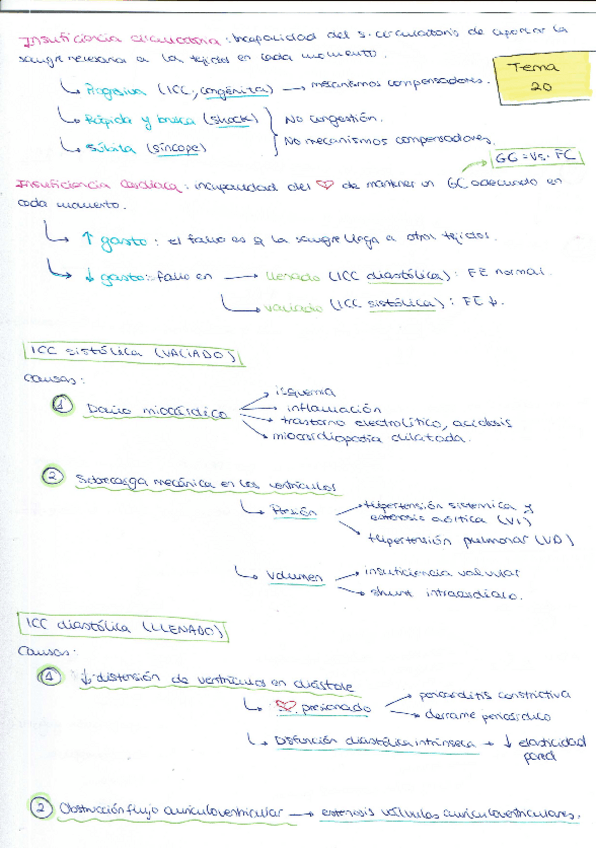 Insuficiencia circulatoria: Incapacidad del s. circulatorio de aportar la
sangre necesaria a los tejidos en cada momento.
Tema
20
↳ Progresiva (ICC, congénita) → mecanismos compensadores.
↳ Rápida y brusca (shock)
↳ Súbita (síncope)
No congestión.
No mecanismos compensadores.
GC = Vs · FC
Insuficiencia cardíaca: incapacidad del ♡ de mantener un GC adecuado en
cada momento.
↳ ↑ gasto: el fallo es q la sangre llega a otros tejidos.
↳ ↓ gasto: fallo en → llenado (ICC diastólica): FE normal.
↳ vaciado (ICC sistólica): FE ↓.
ICC SISTÓLICA (VACIADO)
Causas:
① Daño miocárdico
→ isquemia
→ inflamación
→ trastorno electrolítico, acidosis
→ miocardiopatía dilatada.
② Sobrecarga mecánica en los ventrículos
↳ Presión
→ Hipertensión sistémica y
estenosis aórtica (VI)
→ Hipertensión pulmonar (VD)
↳ Volumen
→ insuficiencia valvular
→ shunt intracardíaco.
ICC diastólica (LLENADO)
Causas:
① ↓ distensión de ventrículos en diástole
↳ ♡ presionado
→ pericarditis constrictiva
→ derrame pericárdico
↳ Disfunción diastólica intrínseca → ↓ elasticidad
pared
② Obstrucción flujo auriculoventricular → estenosis válvulas auriculoventriculares.